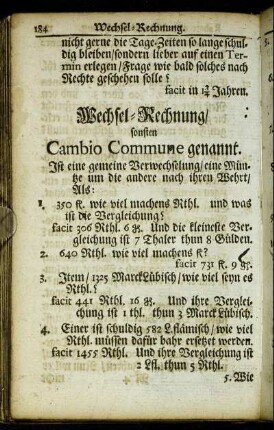 184 Wechsel-Rechnung.
nicht gerne die Tage-Zeiten so lange schul-
dig bleiben/sondern lieber auf einen Ter-
min erlegen/Frage wie bald solches nach
Rechte geschehen solle?
facit in Jahren.
Wechsel-Rechnung/
sonsten
Cambio Commune genannt.
Ist eine gemeine Verwechselung/eine Mün-
tze um die andere nach ihren Wehrt/
Als:
1. 350 fl. wie viel machens Rthl. und was
ist die Vergleichung?
facit 306 Rthl. 6 gl. Und die kleineste Ver-
gleichung ist 7 Thaler thun 8 Gülden.
2. 640 Rthl. wie viel machens fl?
facit 731 fl. 9 gl.
3. Item/1325 Marck Lübisch/wie viel seyn es
Rthl.?
facit 441 Rthl. 16 gl. Und ihre Verglei-
chung ist 1 thl. thun 3 Marck Lübisch.
4. Einer ist schuldig 582 L. flämisch/wie viel
Rthl. müssen dafür bahr ersetzt werden.
facit 1455 Rthl. Und ihre Vergleichung ist
2 Lfl. thun 5 Rthl.
5. Wie